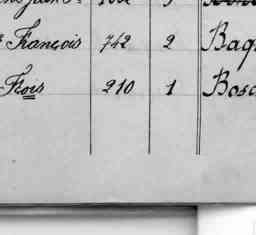 François 742 2 Baq
Frois 210 1 Bosc